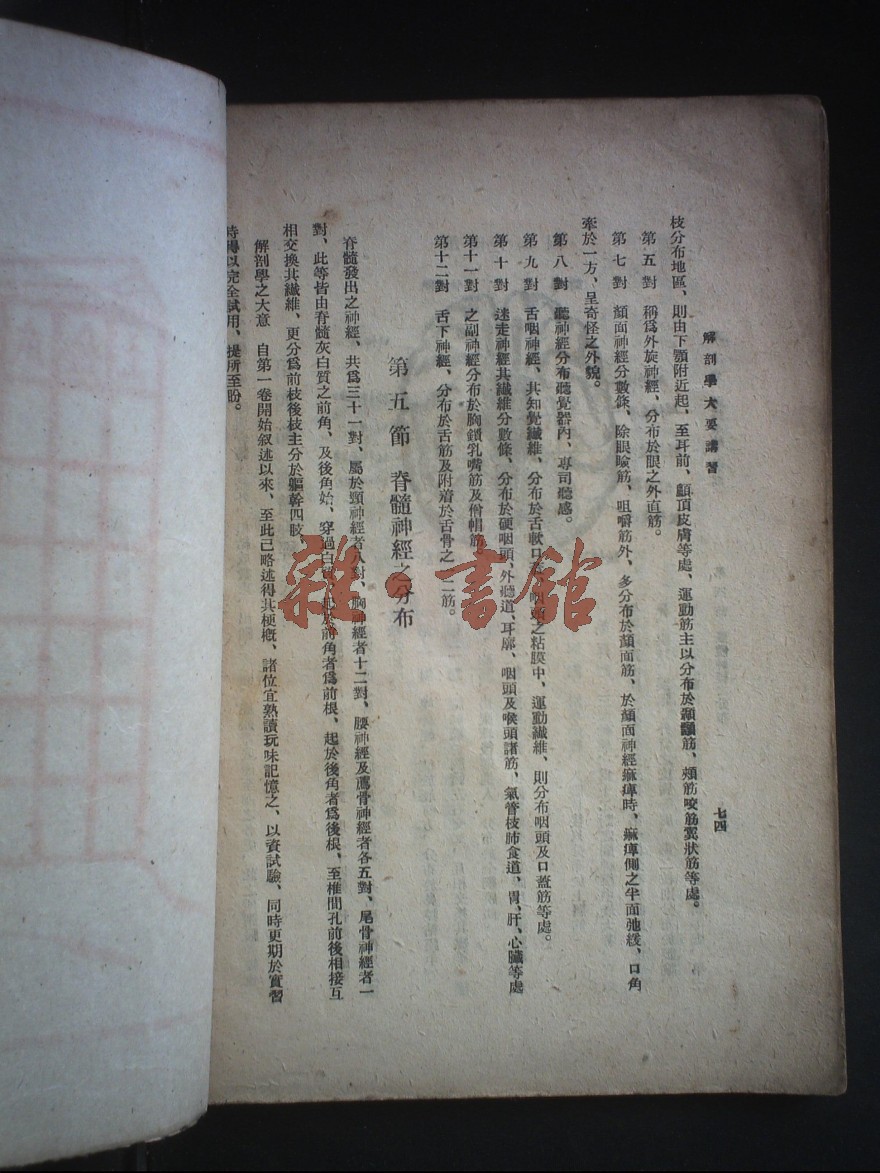 解剖學大要講習
七四
枝分布地區、則由下顎附近起、至耳前、顱頂皮膚等處、運動筋主以分布於顳顬筋、頰筋咬筋翼狀筋等處。
第五對　稱爲外旋神經、分布於眼之外直筋。
第七對　顏面神經分數條、除眼瞼筋、咀嚼筋外、多分布於顏面筋、於顏面神經麻痺時、麻痺側之半面弛緩、口角
牽於一方、呈奇怪之外貌。
第八對　聽神經分布聽覺器內、專司聽感。
第九對　舌咽神經、其知覺纖維、分布於舌軟口蓋、咽頭之粘膜中、運動纖維、則分布咽頭及口蓋筋等處。
第十對　迷走神經其纖維分數條、分布於硬咽頭、外聽道、耳廓、咽頭及喉頭諸筋、氣管枝肺食道、胃、肝、心臟等處
第十一對　之副神經分布於胸鎖乳嘴筋及僧帽筋。
第十二對　舌下神經、分布於舌筋及附着於舌骨之二筋。
第五節　脊髓神經之分布
脊髓發出之神經、共爲三十一對、屬於頸神經者八對、胸神經者十二對、腰神經及薦骨神經者各五對、尾骨神經者一
對、此等皆由脊髓灰白質之前角、及後角始、穿過白質、起於前角者爲前根、起於後角者爲後根、至椎間孔前後相接互
相交換其纖維、更分爲前枝後枝主分於軀幹四肢
解剖學之大意　自第一卷開始叙述以來、至此已略述得其梗概、諸位宜熟讀玩味記憶之、以資試驗、同時更期於實習
時得以完全試用、提所至盼。
雜·書館